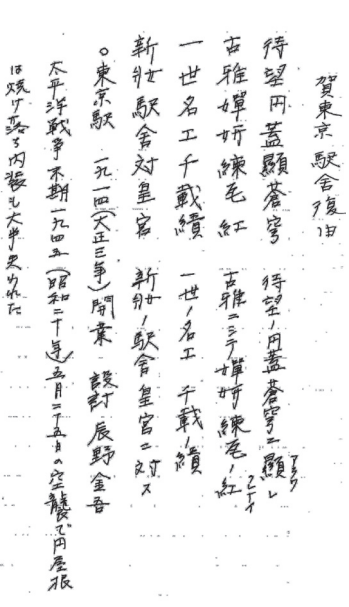 賀東京駅舎復旧
待望円蓋顯蒼穹　待望ノ円蓋蒼穹ニ顯レ
アラワ
古雅嬋妍練瓦紅　古雅ニシテ嬋妍練瓦ノ紅
クレナイ
一世名工千載績　一世ノ名工　千載ノ績
新妝駅舎対皇宮　新妝ノ駅舎皇宮ニ対ス
〇東京駅　一九一四(大正三年)開業　設計　辰野金吾
太平洋戦争末期一九四五(昭和二十年)五月二十五日の空襲で円屋根
は焼け落ち内装も大半失われた